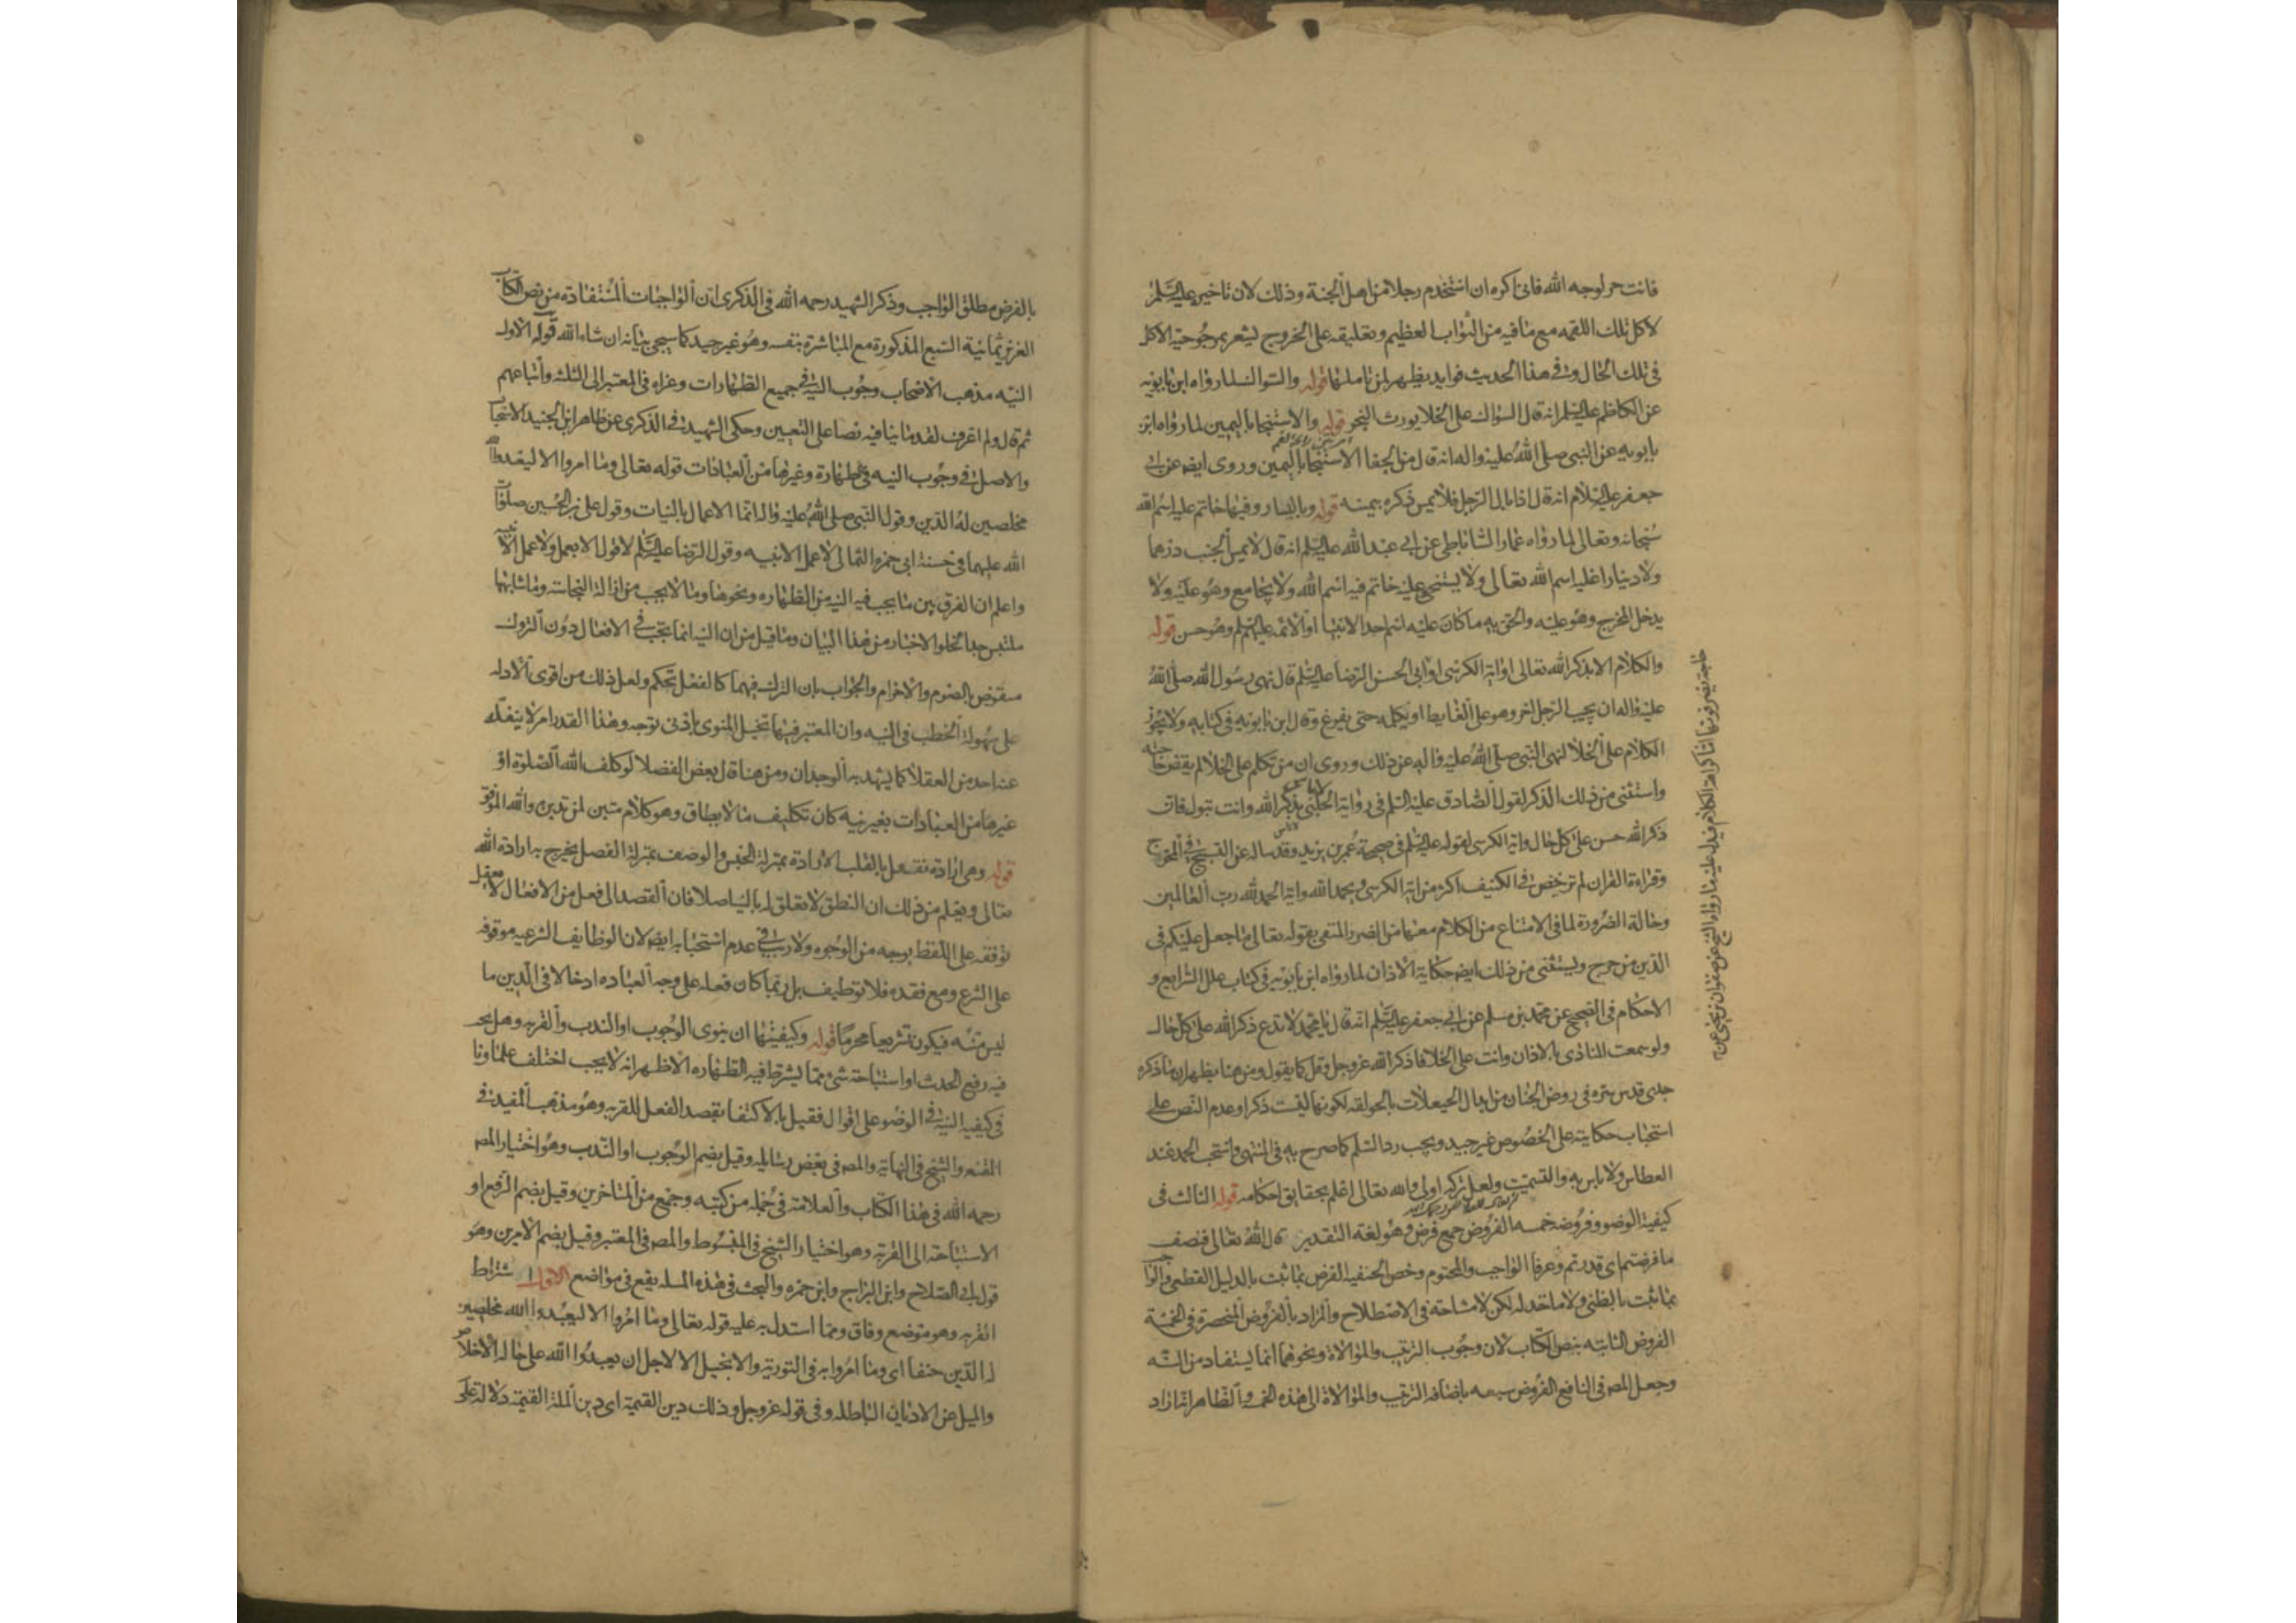 فانت حر لوجه الله فانى اكره ان استخدم رجلا من اهل الجنة وذلك لان تاخيره عليه السلم
لاكل تلك اللقمه مع ما فيه من الثواب العظيم وتعليقه على الخروج يشعر بمرجوحية الاكل
فى تلك الحال وفى هذا الحديث فوايد يظهر لمن تاملها قوله والسواك لما رواه ابن بابويه
عن الكاظم عليه السلم انه قال السواك على الخلا يورث البخر قوله والاستنجا باليمين لما رواه ابن
بابويه عن النبى صلى الله عليه واله انه قال من الجفا الاستنجا باليمين وروى ايضا عن ابى
جعفر عليه السلام انه قال اذا بال الرجل فلا يمس ذكره بيمينه قوله وباليسار وفيها خاتم عليه اسم الله
سبحانه وتعالى لما رواه عمار الساباطى عن ابى عبد الله عليه السلم انه قال لا يمس الجنب درهما
ولا دينارا عليه اسم الله تعالى ولا يستنجى وعليه خاتم فيه اسم الله ولا يجامع وهو عليه ولا
يدخل المخرج وهو عليه والحق به ما كان عليه اسم احد الانبيا او الائمه عليهم السلم وهو حسن قوله
والكلام الا بذكر الله تعالى او اية الكرسى لرواية ابى الحسن الرضا عليه السلم قال نهى رسول الله صلى الله
عليه واله ان يجيب الرجل اخر وهو على الغايط او يكلمه حتى يفرغ وقال ابن بابويه فى كتابه ولا يجوز
الكلام على الخلا لنهى النبى صلى الله عليه واله عن ذلك وروى ان من تكلم على الخلا لم يقض حاجته
واستثنى من ذلك الذكر لقول الصادق عليه السلم فى رواية الحلبى لا باس بذكر الله وانت تبول فان
ذكر الله حسن على كل حال واية الكرسى لقوله عليه السلم فى صحيحة عمر بن يزيد وقد ساله عن التسبيح فى المخرج
وقراءة القران لم يرخص فى الكنيف اكثر من اية الكرسى ويحمد الله واية الحمد لله رب العالمين
وحالة الضرورة لما فى الامتناع من الكلام معها من الضرر المنفى بقوله تعالى ما جعل عليكم فى
الدين من حرج ويستثنى من ذلك ايضا حكاية الاذان لما رواه ابن بابويه فى كتاب علل الشرايع و
الاحكام فى الصحيح عن محمد بن مسلم عن ابى جعفر عليه السلم انه قال يا محمد لا تدع ذكر الله على كل حال
ولو سمعت المنادى بالاذان وانت على الخلا فاذكر الله عز وجل وقل كما يقول ومن هنا يظهر ان ما ذكره
جدى قدس سره فى روض الجنان من ابدال الحيعلات بالحولقه لكونها ليست ذكرا وعدم النص على
استحباب حكايته على الخصوص غير جيد ويجب رد السلم كما صرح به فى المنتهى واستحب الحمد عند
العطاس ولا باس به والتسميت ولعل تركه اولى والله تعالى اعلم بحقايق احكامه قوله الثالث فى
كيفية الوضو وفروضه خمسه الفروض جمع فرض وهو لغة التقدير قال الله تعالى فنصف
ما فرضتم اى قدرتم وعرفا الواجب والمحتوم وخص الحنفية الفرض بما ثبت بالدليل القطعى والواجب
بما ثبت بالظنى ولا ماخذ له لكن لا مشاحة فى الاصطلاح والمراد بالفروض المنحصرة فى الخمسة
الفروض الثابته بنص الكتاب لان وجوب الترتيب والموالاة ونحوهما انما يستفاد من السنه
وجعل المص فى النافع الفروض سبعه باضافة الترتيب والموالاة الى هذه الخمسه والظاهر انه اراد
حاجته يضر فوتها اما كراهة الكلام فيدل عليه ما رواه الشيخ عن صفوان بن يحيى عن
بالفرض مطلق الواجب وذكر الشهيد رحمه الله فى الذكرى ان الواجبات المستفادة من نص الكتاب
العزيز ثمانية السبع المذكورة مع المباشرة بنفسه وهو غير جيد كما سيجى بيانه ان شاء الله قوله الاول
النيه مذهب الاصحاب وجوب النية فى جميع الطهارات وعزاه فى المعتبر الى الثلثه واتباعهم
ثم قال ولم اعرف لقدمائنا فيه نصا على التعيين وحكى الشهيد فى الذكرى عن ظاهر ابن الجنيد الاستحباب
والاصل فى وجوب النيه فى الطهارة وغيرها من العبادات قوله تعالى وما امروا الا ليعبدوا الله
مخلصين له الدين وقول النبى صلى الله عليه واله انما الاعمال بالنيات وقول على بن الحسين صلوات
الله عليهما فى حسنة ابى حمزه الثمالى لا عمل الا بنيه وقول الرضا عليه السلم لا قول الا بعمل ولا عمل الا بنيه
واعلم ان الفرق بين ما يجب فيه النيه من الطهاره ونحوها وما لا يجب من ازالة النجاسة وما شابهها
ملتبس جدا لخلو الاخبار من هذا البيان وما قيل من ان النيه انما تجب فى الافعال دون التروك
منقوض بالصوم والاحرام والجواب بان الترك فيهما كالفعل تحكم ولعل ذلك من اقوى الادله
على سهولة الخطب فى النيه وان المعتبر فيها تخيل المنوى بادنى توجه وهذا القدر امر لا ينفك
عنه احد من العقلا كما يشهد به الوجدان ومن هنا قال بعض الفضلا لو كلف الله الصلوة او
غيرها من العبادات بغير نيه كان تكليف ما لا يطاق وهو كلام متين لمن تدبره والله الموفق
قوله وهى ارادة تفعل بالقلب الارادة بمنزلة الجنس والوصف بمنزلة الفصل يخرج به ارادة الله
تعالى ويعلم من ذلك ان النطق لا تعلق له بالنية اصلا فان القصد الى فعل من الافعال لا يعقل
توقفه على اللفظ بوجه من الوجوه ولا ريب فى عدم استحبابه ايضا لان الوظايف الشرعيه موقوفه
على الشرع ومع فقده فلا توظيف بل ربما كان فعله على وجه العباده ادخالا فى الدين ما
ليس منه فيكون تشريعا محرما قوله وكيفيتها ان ينوى الوجوب او الندب والقربه وهل يجب
فيه رفع الحدث او استباحة شىء مما يشترط فيه الطهاره الاظهر انه لا يجب اختلف علماونا
فى كيفية النية فى الوضو على اقوال فقيل بالاكتفا بقصد الفعل للقربه وهو مذهب المفيد فى
المقنعه والشيخ فى النهاية والمص فى بعض رسايله وقيل بضم الوجوب او الندب وهو اختيار المص
رحمه الله فى هذا الكتاب والعلامة فى جمله من كتبه وجمع من المتاخرين وقيل بضم الرفع او
الاستباحة الى القربه وهو اختيار الشيخ فى المبسوط والمص فى المعتبر وقيل بضم الامرين وهو
قول ابى الصلاح وابن البراج وابن حمزه والبحث فى هذه المسله يقع فى مواضع الاول اشتراط
القربه وهو موضع وفاق ومما استدل به عليه قوله تعالى وما امروا الا ليعبدوا الله مخلصين
له الدين حنفا اى وما امروا به فى التورية والانجيل الا لاجل ان يعبدوا الله على حالة الاخلاص
والميل عن الاديان الباطله وفى قوله عز وجل وذلك دين القيمة اى دين الملة القيمة دلالة على